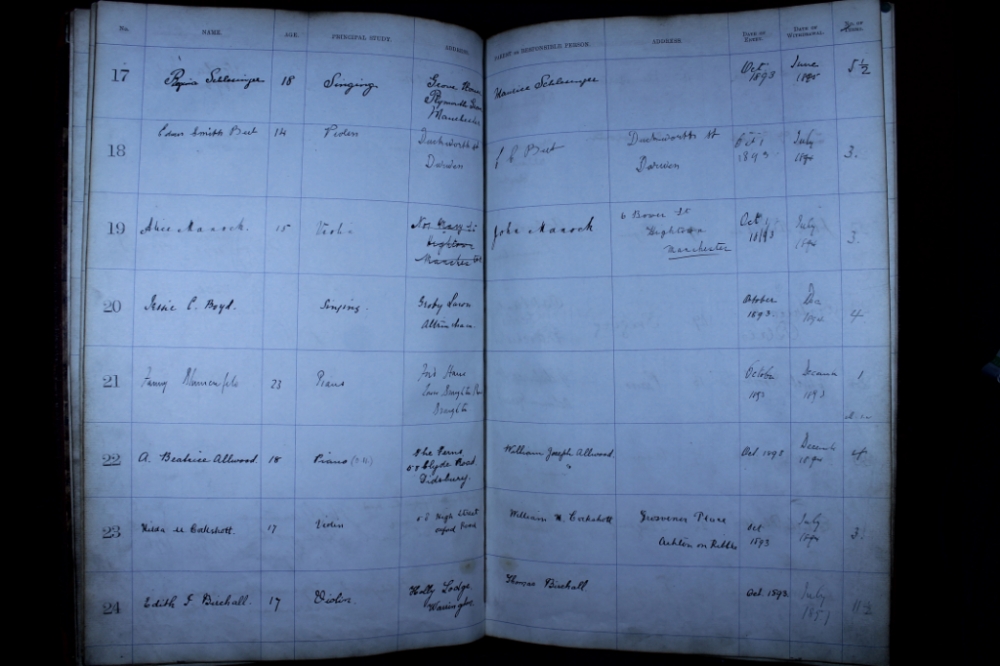 No. NAME. AGE. PRINCIPAL STUDY. ADDRESS. PARENT OR RESPONSIBLE PERSON. ADDRESS. DATE OF ENTRY. DATE OF WITHDRAWAL. No. OF
17 Schlesinger 18 Singing Grove Maurice Schlesinger Oct 1893 June 1895 5 1/2
Plymouth Grove
Manchester
18 Edwin Smith Bert 14 Violin Duckworth St Duckworth St Oct 1893 July 1894 3.
Darwen Darwen
19 Alice Manock. 15 Violin John Manock 6 Bower St Oct 1893 July 1894 3.
Hightown
Manchester
20 Jessie C. Boyd. Singing. Groby Lawn October 1893 1894 4
Altrincham.
21 Fanny 23 Piano October 1893 1
22 A. Beatrice Allwood 18 Piano The Ferns William Joseph Allwood Oct 1893 Decemb 1894 4
Clyde Road.
Didsbury.
23 Hilda M Cakshott. 17 Violin High Street William H. Cakshott Grosvenor Place Oct 1893 July 1894 3.
Oxford Road Ashton on Ribble
24 Edith G Birchall. 17 Violin. Holly Lodge, Thomas Birchall Oct. 1893 July 1897 11 1/2
Warrington